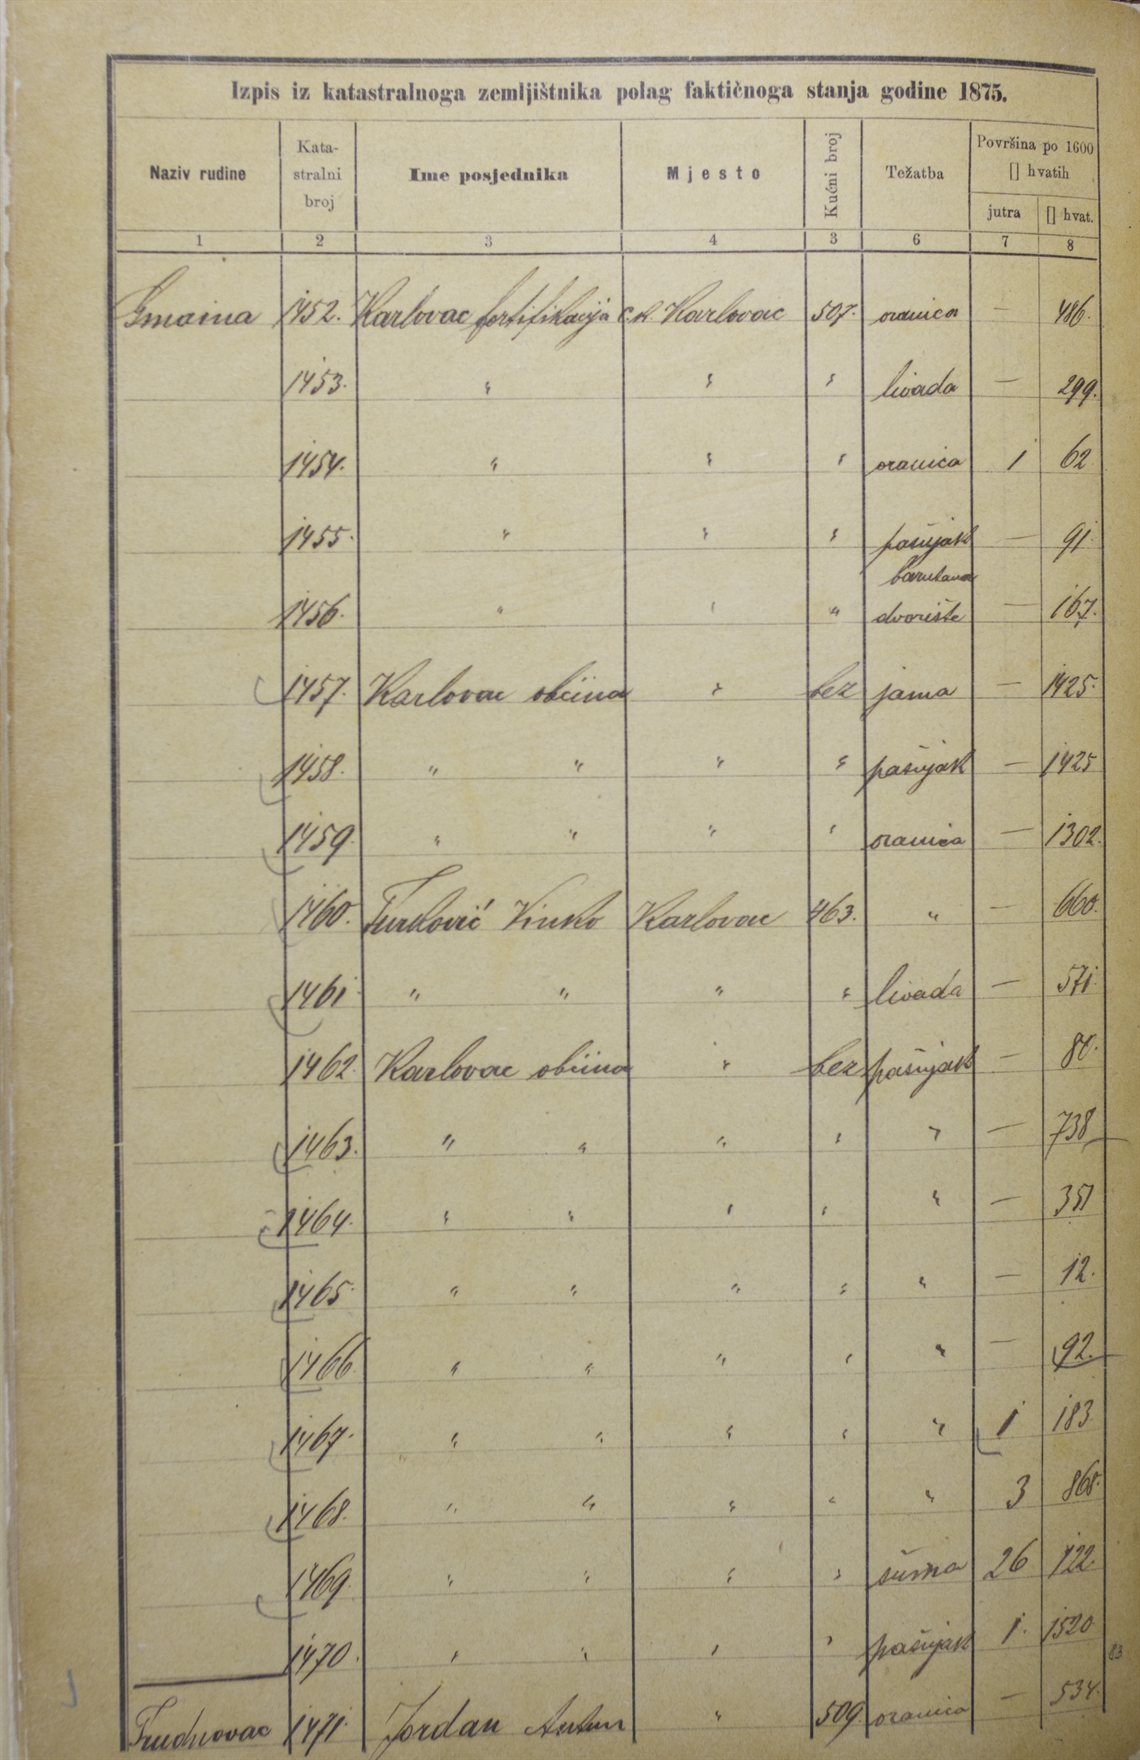 Izpis iz katastralnoga zemljištnika polag faktičnoga stanja godine 1875.
Naziv rudine Kata- stralni broj Ime posjednika Mjesto Kućni broj Težatba Površina po 1600 [] hvatih
jutra [] hvat.
1 2 3 4 3 6 7 8
Gmaina 1452. Karlovac fortifikacija c.k. Karlovac 507. oranica — 486.
1453. " " " livada — 299.
1454. " " " oranica 1 62
1455. " " " pašnjak — 91
barutana
1456. " " " dvorište — 167.
1457. Karlovac obćina " bez jama — 1425.
1458. " " " " pašnjak — 1425
1459. " " " " oranica — 1302.
1460. Vinko Karlovac 463. " — 660.
1461 " " " " livada — 571.
1462 Karlovac obćina " bez pašnjak — 80.
1463. " " " " " — 738
1464. " " " " " — 351
1465. " " " " " — 12.
1466. " " " " " — 92.
1467. " " " " " 1 183
1468. " " " " " 3 868.
1469. " " " " šuma 26 122.
1470. " " " " pašnjak 1. 1520
83
1471. Jordan Antun " 509 oranica — 534.